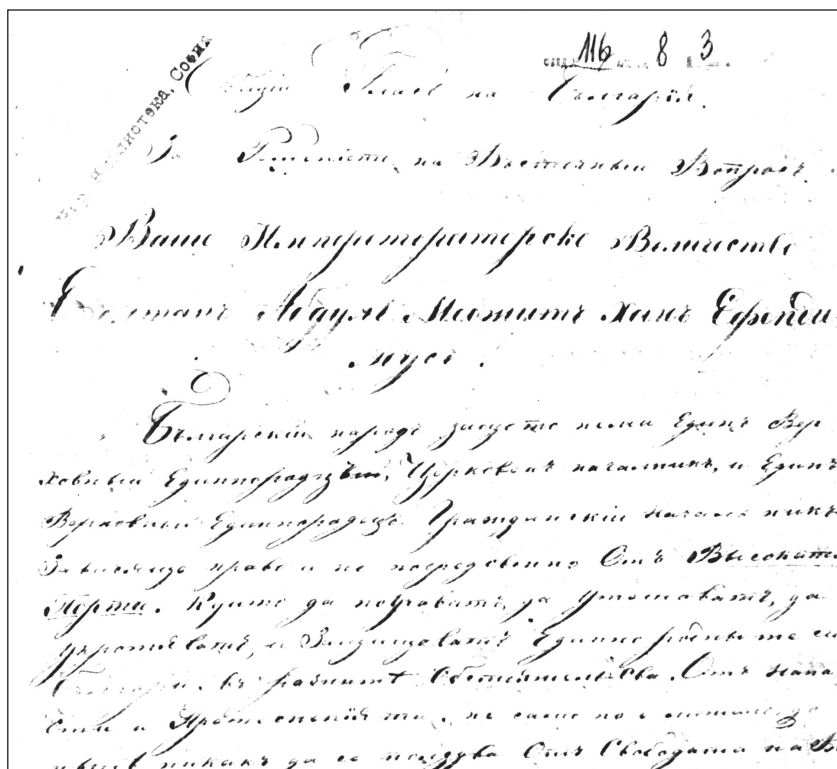 116 8 3
Нар. Библиотека, София
Общiй Гласъ на Българiя.
За Решенiето на Въсточный Вопросъ.
Ваше Императораторско Величество
Султанъ Абдулъ Меджитъ Ханъ Ефенди
мусъ.
Българскiй народъ защото нема Единъ Вер
ховный Единнородецъ, Церковенъ началникъ, и Единъ
Верховный Единнородецъ Гражданскiй началникъ
зависящь право и не посредственно Отъ Высоката
Порта. Куито да поучаватъ, да утешаватъ, да
укротяватъ, и Защищаватъ Единнородныте си
Българи, въ разните Обстоятелства. Отъ напа
сти и Притесненiята, не само по
никакъ да се ползува Отъ Свободата на